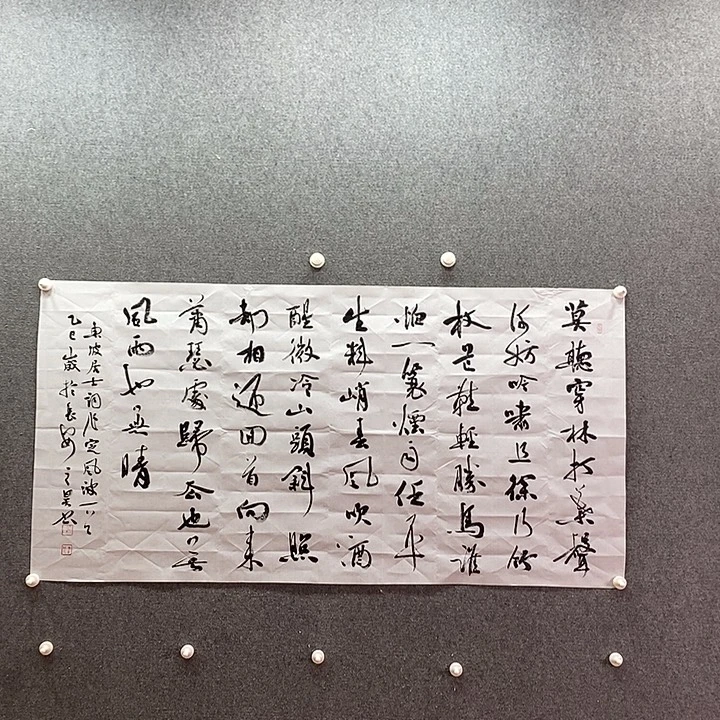 莫聽穿林打葉聲
何妨吟嘯且徐行竹
杖芒鞋輕勝馬誰
怕一蓑煙雨任平
生料峭春風吹酒
醒微冷山頭斜照
却相迎回首向來
蕭瑟處歸去也無
風雨也無晴
東坡居士詞作定風波一首
乙巳歲於長安